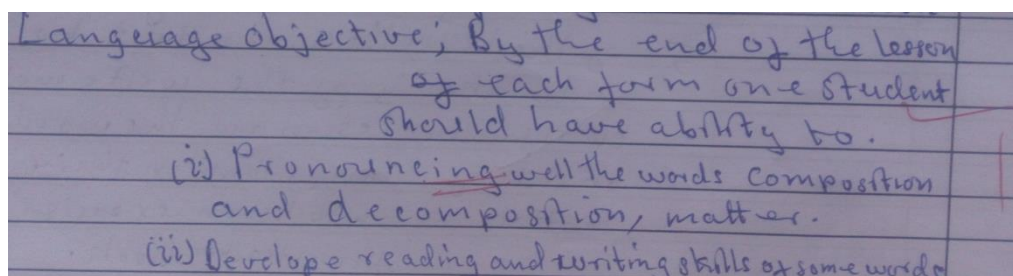 Language objective; By the end of the lesson
of each form one student
should have ability to.
(i) Pronouncing well the words composition
and decomposition, matter.
(ii) Develope reading and writing skills of some words